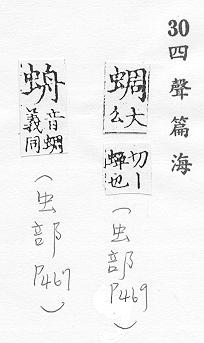 30四聲篇海
蜩大么切丨蟬也（虫部P469）
音蜩義同（虫部P467）